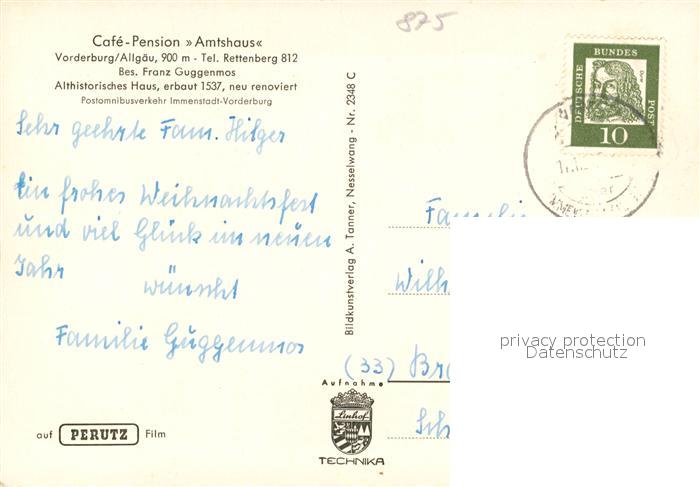 875
Café-Pension »Amtshaus«
Vorderburg/Allgäu, 900 m - Tel. Rettenberg 812
Bes. Franz Guggenmos
Althistorisches Haus, erbaut 1537, neu renoviert
Postomnibusverkehr Immenstadt-Vorderburg
Sehr geehrte Fam. Hilger
Ein frohes Weihnachtsfest
und viel Glück im neuen
Jahr
wünscht
Familie Guggenmos
auf PERUTZ Film
Bildkunstverlag A. Tanner, Nesselwang - Nr. 2348 C
Aufnahme
Linhof
TECHNIKA
DEUTSCHE
BUNDES
POST
10
Familie
Wilh
(33) Br
Sch
privacy protection
Datenschutz